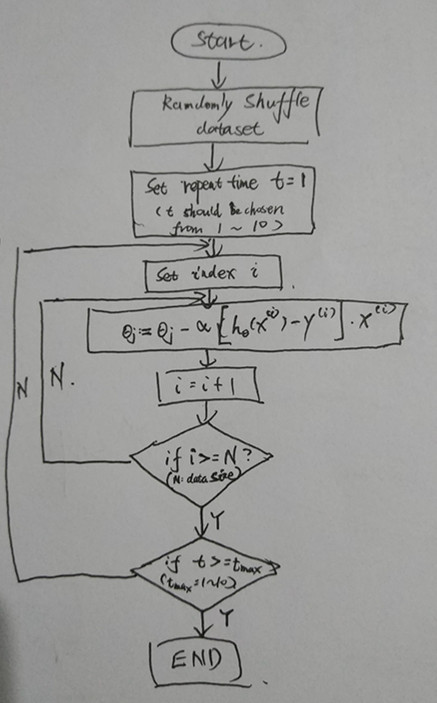 Start.
Randomly Shuffle
dataset
Set repeat time t=1
(t should be chosen
from 1~10)
Set index i
θj := θj - α [hθ(x^(i)) - y^(i)] · x^(i)
i = i+1
if i>=N?
(N: data size)
N
N.
Y
if t>=tmax
(tmax=1~10)
Y
END